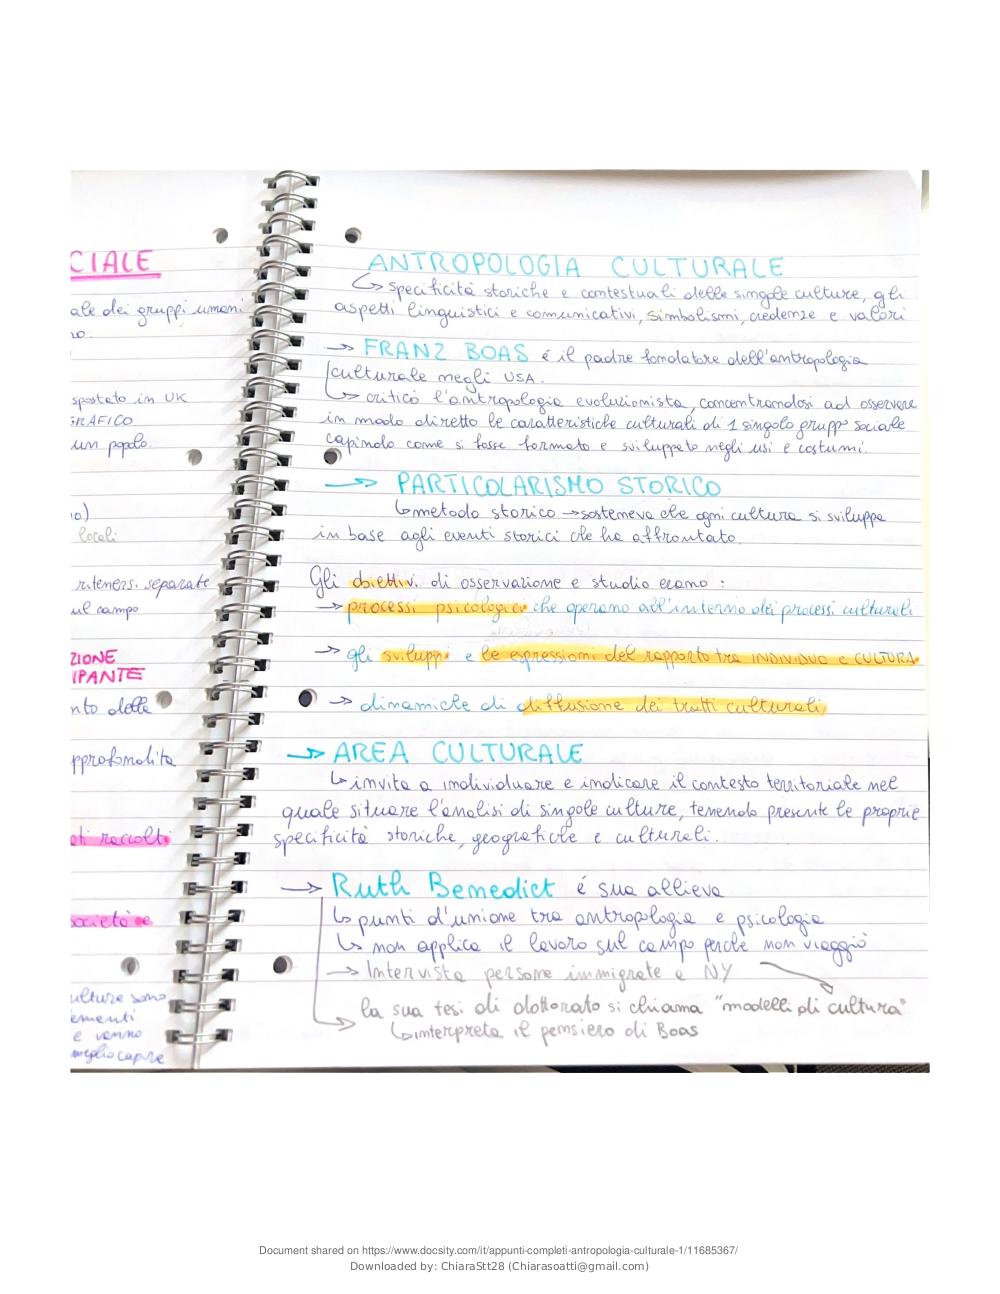 CIALE
ale dei gruppi umani
no.
spostato in UK
GRAFICO
un popolo.
locali
ritenersi separate
ul campo
ZIONE
IPANTE
nto delle
pprofondita
ati raccolti
società e
ulture sono
ementi
e vanno
meglio capire
ANTROPOLOGIA CULTURALE
↳ specificità storiche e contestuali delle singole culture, gli
aspetti linguistici e comunicativi, simbolismi, credenze e valori
→ FRANZ BOAS é il padre fondatore dell'antropologia
culturale negli USA.
↳ criticò l'antropologia evoluzionista, concentrandosi ad osservare
in modo diretto le caratteristiche culturali di 1 singolo gruppo sociale
capindo come si fosse formato e sviluppato negli usi e costumi.
→ PARTICOLARISMO STORICO
↳ metodo storico → sosteneva che ogni cultura si sviluppa
in base agli eventi storici che ha affrontato.
Gli obiettivi di osservazione e studio erano :
→ processi psicologici che operano all'interno dei processi culturali
→ gli sviluppi e le espressioni del rapporto tra INDIVIDUO e CULTURA
→ dinamiche di diffusione dei tratti culturali
→ AREA CULTURALE
↳ invita a individuare e indicare il contesto territoriale nel
quale situare l'analisi di singole culture, tenendo presente le proprie
specificità storiche, geografiche e culturali.
→ Ruth Benedict é sua allieva
↳ punti d'unione tra antropologia e psicologia
↳ non applica il lavoro sul campo perché non viaggiò
→ Intervista persone immigrate a NY
la sua tesi di dottorato si chiama "modelli di cultura"
↳ interpreta il pensiero di Boas
Document shared on https://www.docsity.com/it/appunti-completi-antropologia-culturale-1/11685367/
Downloaded by: ChiaraStt28 (Chiarasoatti@gmail.com)